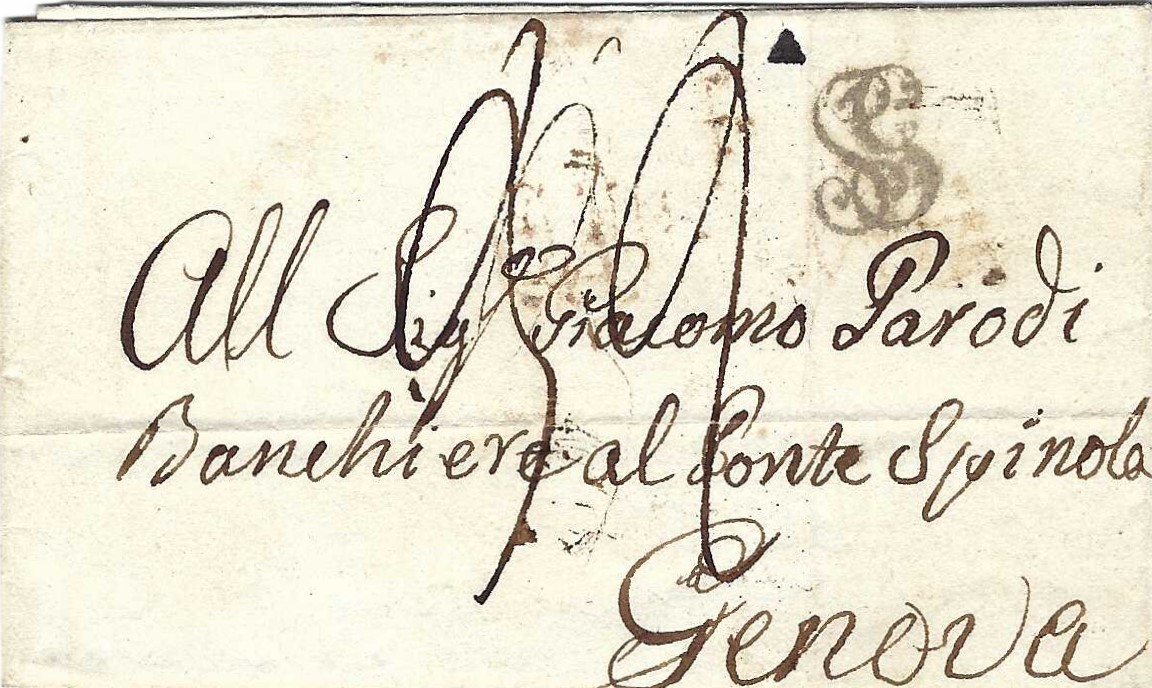 S
All Sig.re Giacomo Parodi
Banchiere al Ponte Spinola
Genova